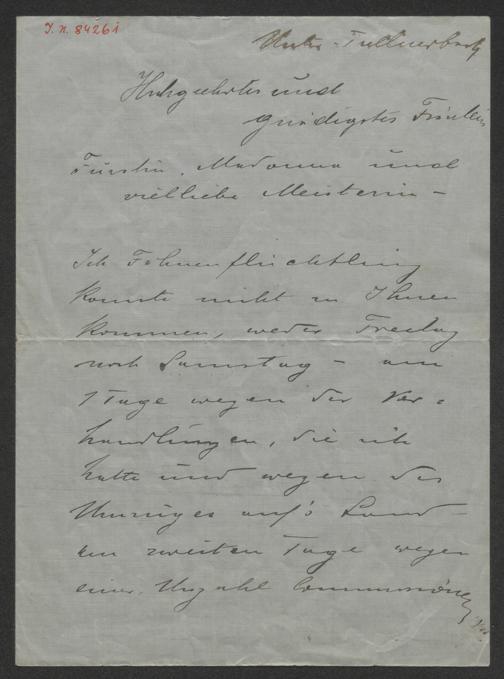 I. N. 84261
Unter-Tullnerbach
Hochgeehrtes und
gnädigstes Fräulein
Fürstin, Madonna und
vielliebe Meisterin –
Ich Fahnenflüchtling
konnte nicht zu Ihnen
kommen, weder Freitag
noch Samstag – am
1 Tage wegen der Ver=
handlungen, die ich
hatte und wegen des
Umzuges auf's Land –
am zweiten Tage wegen
einer Unzahl Commissionen